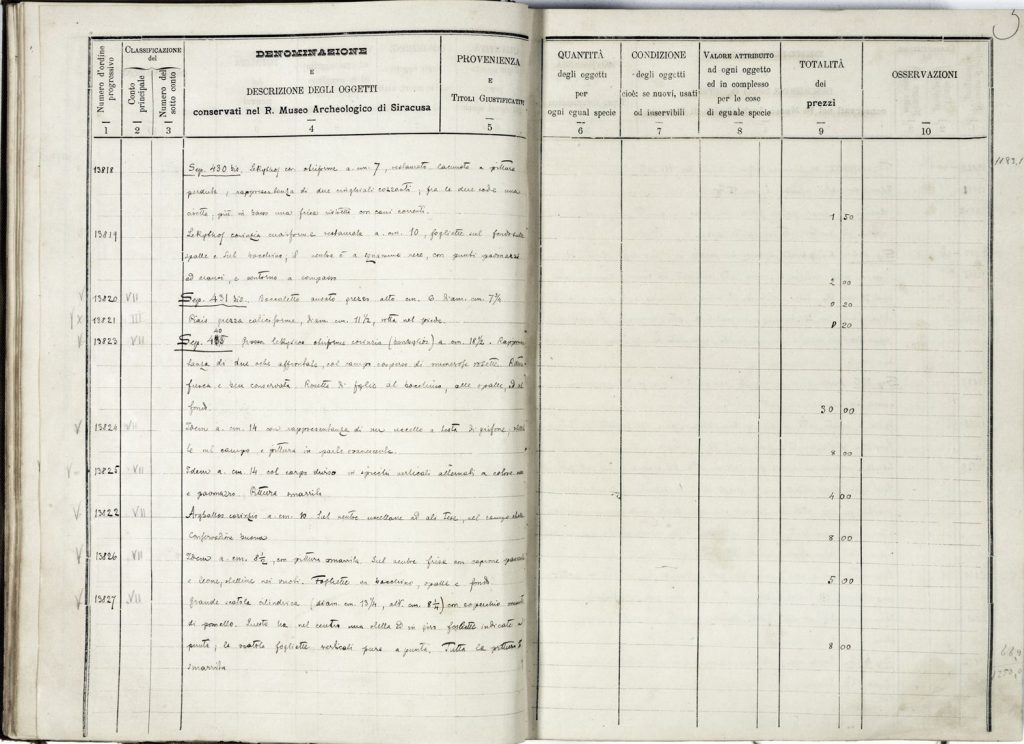 5
Numero d'ordine progressivo
CLASSIFICAZIONE del
Conto principale
Numero del sotto conto
DENOMINAZIONE
E
DESCRIZIONE DEGLI OGGETTI
conservati nel R. Museo Archeologico di Siracusa
PROVENIENZA
E
TITOLI GIUSTIFICATIVI
QUANTITÀ
degli oggetti
per
ogni egual specie
CONDIZIONE
degli oggetti
cioè: se nuovi, usati
od inservibili
VALORE ATTRIBUITO
ad ogni oggetto
ed in complesso
per le cose
di eguale specie
TOTALITÀ
dei
prezzi
OSSERVAZIONI
1 2 3 4 5 6 7 8 9 10
13818 Sep. 430 bis. Lekythos cor. obiforme a cm. 7, restaurato lacunato e pittura
perduta; rappresentanza di due cinghiali cozzanti; fra le due code una
civetta; più in basso una frisa con cani correnti. 1 50
13819 Lekythos corinzia cuoriforme restaurata a cm. 10, fogliette sul fondo
spalle e sul bocchino; il ventre è a squamme nere, con punti paonazzi
ed cranoi, e contorno a compasso 2 00
13820 VII Sep. 431 bis. Boccaletto ansato grezzo alto cm. 6 diam. cm. 7¾ 0 20
13821 III Piato grezza caliciforme, diam. cm. 11½, rotta nel piede. 0 20
13823 VII Sep. 440 Grosso lekythos obiforme corinzia (bombylios) a cm. 18½. Rappresen
tanza di due oche affrontate, col campo cosparso di numerose rosette. Pittura
fresca e ben conservata. Rosette di foglie al bocchino, alle spalle, ed al
fondo. 30 00
13824 VII Idem a cm. 14 con rappresentanza di un uccello a testa di grifone,
nel campo e pittura in parte svanita. 8 00
13825 VII Idem a cm. 14 col corpo diviso in spicchi verticali alternati a colore
e paonazzo. Pittura smarrita 4 00
13822 VII Aryballos corinzio a cm. Sul ventre uccellone ad ali tese, nel campo
Conservazione buona 8 00
13826 VII Idem a cm. 8½, con pittura smarrita. Sul ventre frisa con caprone
e leone, stelline nei vuoti. Fogliette in bocchino, spalle e fondo. 5 00
13827 VII Grande scatola cilindrica (diam. cm. 13¼, alt. cm. 8¼) con coperchio
di pomello. Questo ha nel centro una stella ed in giro fogliette indicate a
punta; la scatola fogliette verticali pure a punta. Tutta la pittura è
smarrita 8 00